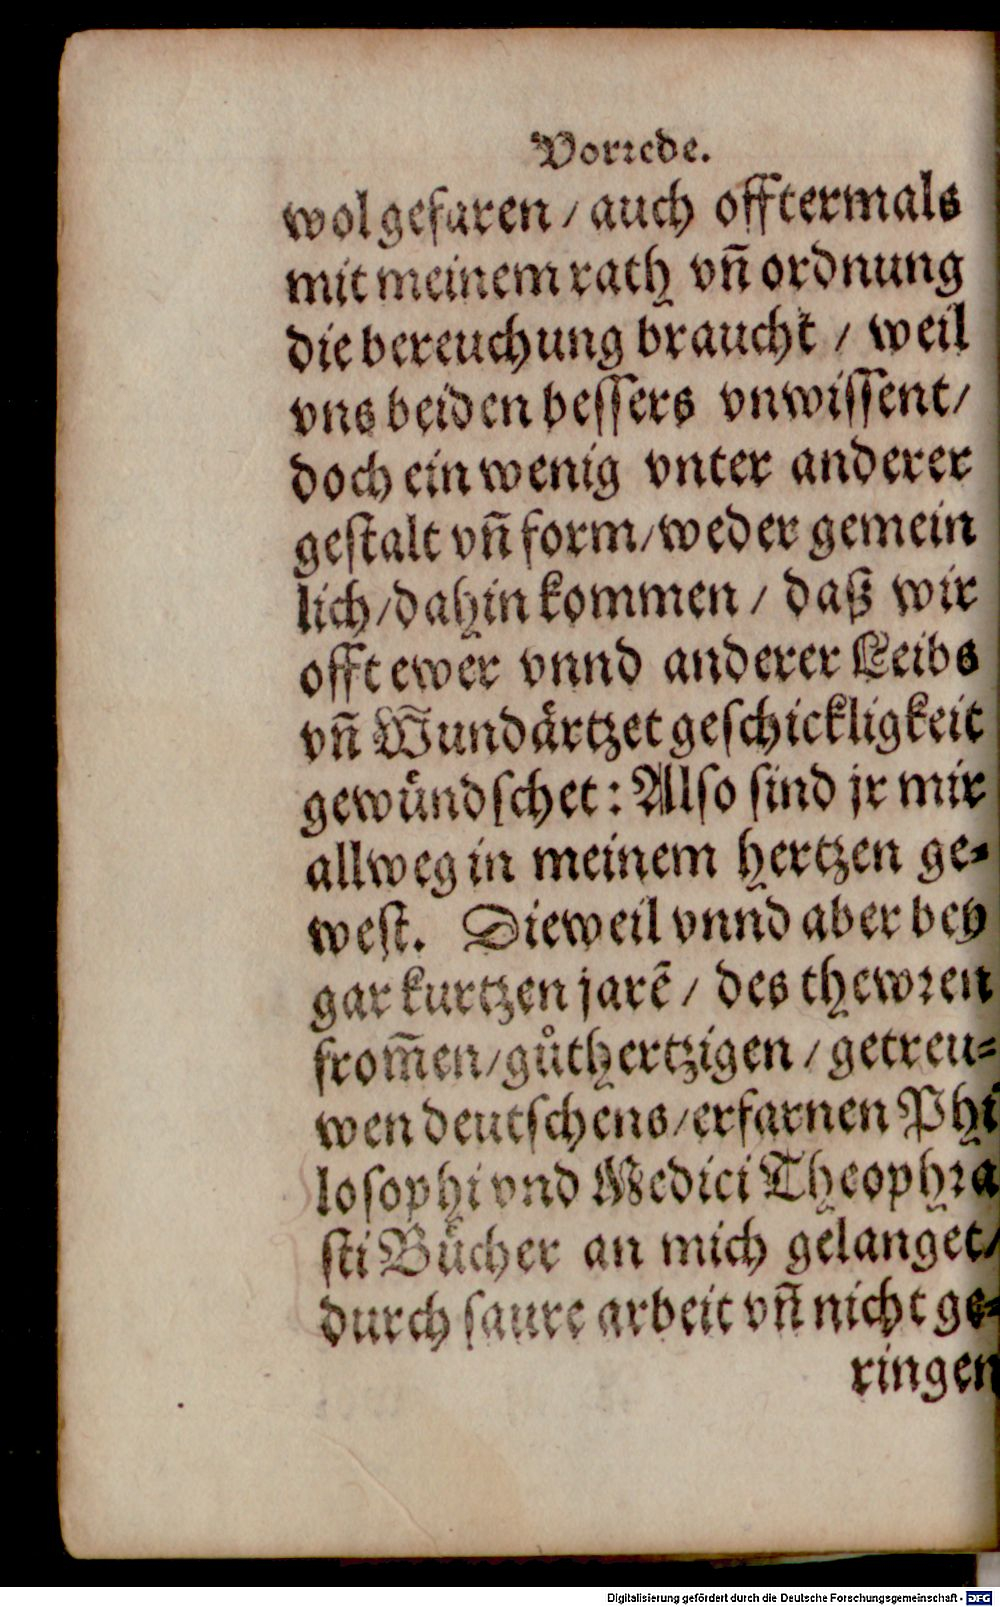 Vorrede.
wol gefaren / auch offtermals
mit meinem rath vñ ordnung
die bereuchung braucht / weil
vns beiden bessers vnwissent /
doch ein wenig vnter anderer
gestalt vñ form / weder gemein
lich / dahin kommen / daß wir
offt ewer vnnd anderer Leibs
vñ Wundärtzet geschickligkeit
gewündschet: Also sind jr mir
allweg in meinem hertzen ge-
west. Dieweil vnnd aber bey
gar kurtzen jarẽ / des thewren
from̃en / gůthertzigen / getreu-
wen deutschens / erfarnen Phi
losophi vnd Medici Theophra
sti Bücher an mich gelanget /
durch saure arbeit vñ nicht ge-
ringen
Digitalisierung gefördert durch die Deutsche Forschungsgemeinschaft - DFG